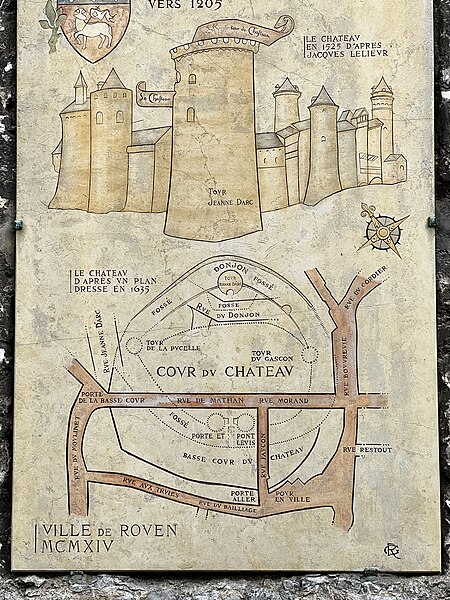 VERS 1205
LE CHATEAV
EN 1525 D'APRES
JACQVES LELIEVR
TOVR
JEANNE DARC
LE CHATEAV
D'APRÈS VN PLAN
DRESSE EN 1635
DONJON
FOSSÉ
FOSSÉ
TOVR
JEANNE DARC
FOSSE
RVE DV DONJON
RVE DV CORDIER
RVE JEANNE DARC
TOVR
DE LA PVCELLE
TOVR
DV GASCON
COVR DV CHATEAV
RVE BOVVREVIL
PORTE
DE LA BASSE COVR
RVE DE MATHAN
RVE MORAND
FOSSÉ
PORTE ET PONT
LEVIS
BASSE COVR DV CHATEAV
RVE FAVCON
RVE DV MOVLINET
RVE RESTOUT
RVE AVX IRVIES
RVE DV BAILLIAGE
PORTE POVR
ALLER EN VILLE
VILLE DE ROVEN
MCMXIV